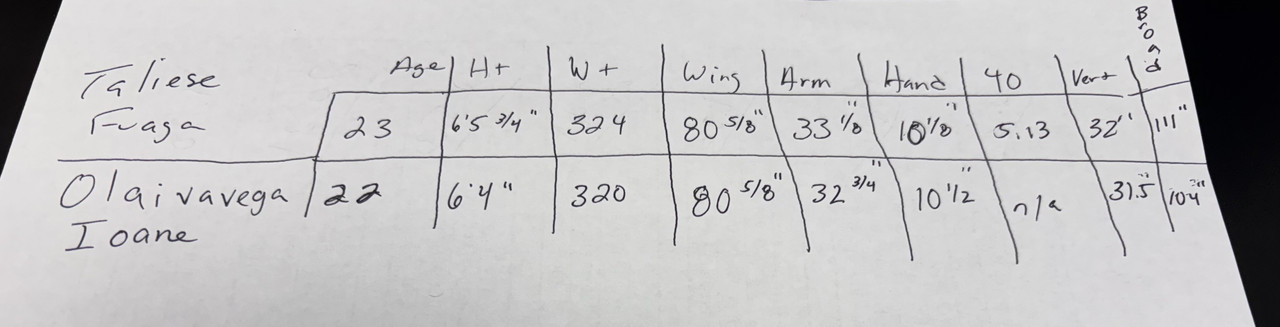 Age Ht Wt Wing Arm Hand 40 Vert Broad
Taliese
Fuaga 23 6'5 3/4" 324 80 5/8" 33 1/8" 10 1/8" 5.13 32" 111"
Olaivavega 22 6'4" 320 80 5/8" 32 3/4" 10 1/2" n/a 31.5" 104"
Ioane